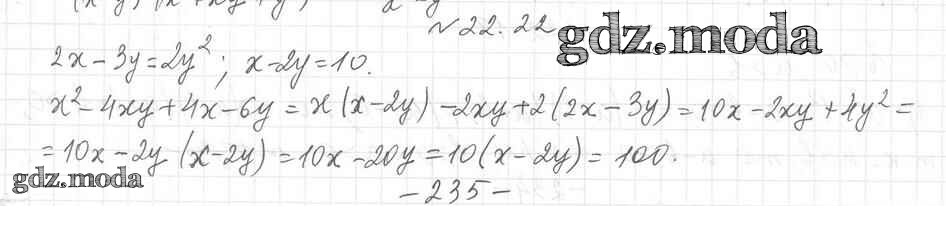 №22.22
gdz.moda
2x - 3y = 2y²; x - 2y = 10.
x² - 4xy + 4x - 6y = x(x - 2y) - 2xy + 2(2x - 3y) = 10x - 2xy + 4y² =
= 10x - 2y(x - 2y) = 10x - 20y = 10(x - 2y) = 100.
gdz.moda
- 235 -